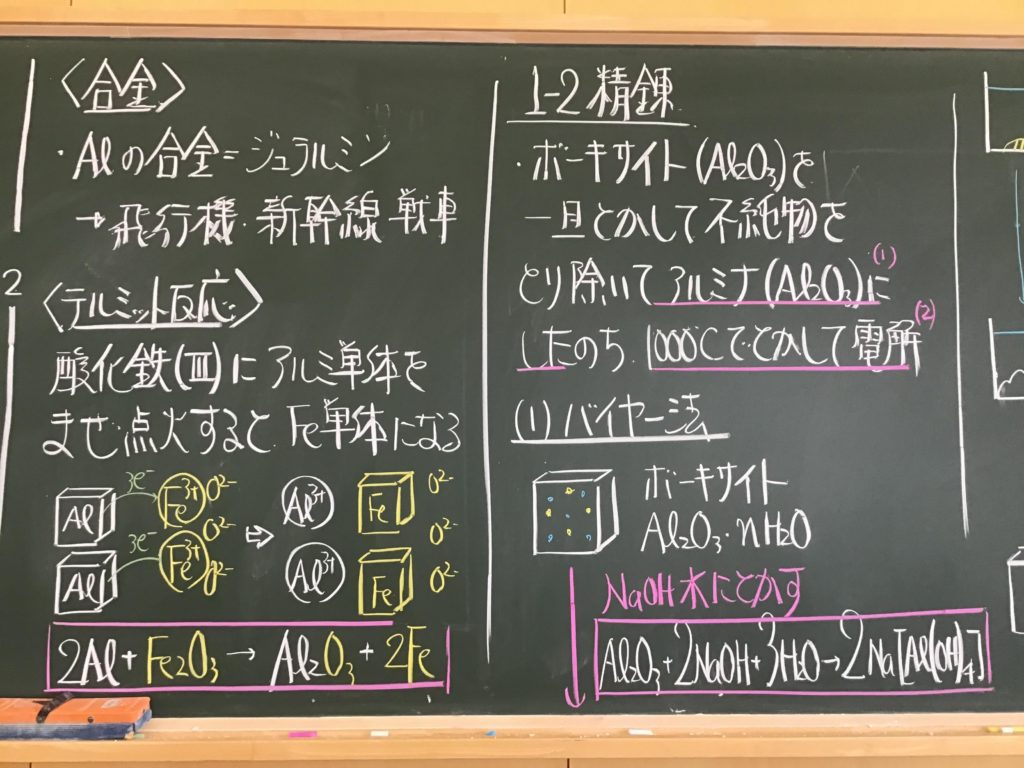 2
〈合金〉
・Alの合金=ジュラルミン
→飛行機・新幹線 戦車
〈テルミット反応〉
酸化鉄(Ⅲ)にアルミ単体を
まぜ点火するとFe単体になる
Al 3e⁻ Fe³⁺ O²⁻ ⇨ Al³⁺ Fe O²⁻
O²⁻ O²⁻
Al 3e⁻ Fe³⁺ O²⁻ Al³⁺ Fe O²⁻
2Al + Fe₂O₃ → Al₂O₃ + 2Fe
1-2 精錬
・ボーキサイト(Al₂O₃)を
一旦とかして不純物を
とり除いてアルミナ(Al₂O₃)に(1)
したのち 1000℃でとかして電解(2)
(1) バイヤー法
ボーキサイト
Al₂O₃・nH₂O
NaOH水にとかす
Al₂O₃+2NaOH+3H₂O→2Na[Al(OH)₄]